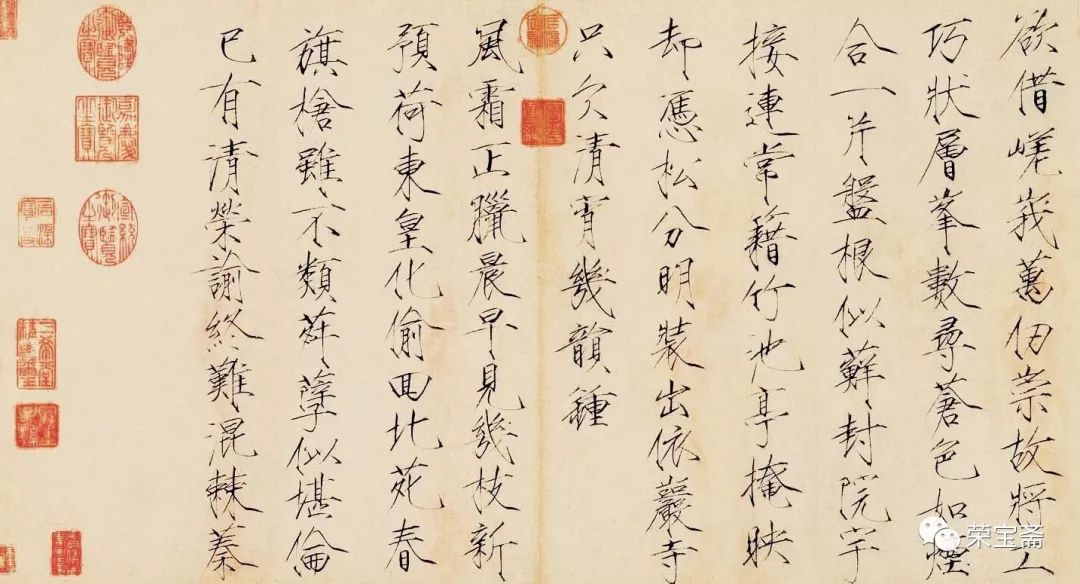 欲借嵯峩萬仞崇故將工
巧狀層峯數尋蒼色如煙
合一片盤根似蘚封院宇
接連常籍竹池亭掩映
却憑松分明裝出依巖寺
只欠清宵幾韻鍾
風霜正臘晨早見幾枝新
預荷東皇化偷囬北苑春
旗槍雖不類荈孽似堪倫
已有清榮諭終難混棘蓁
荣宝斋